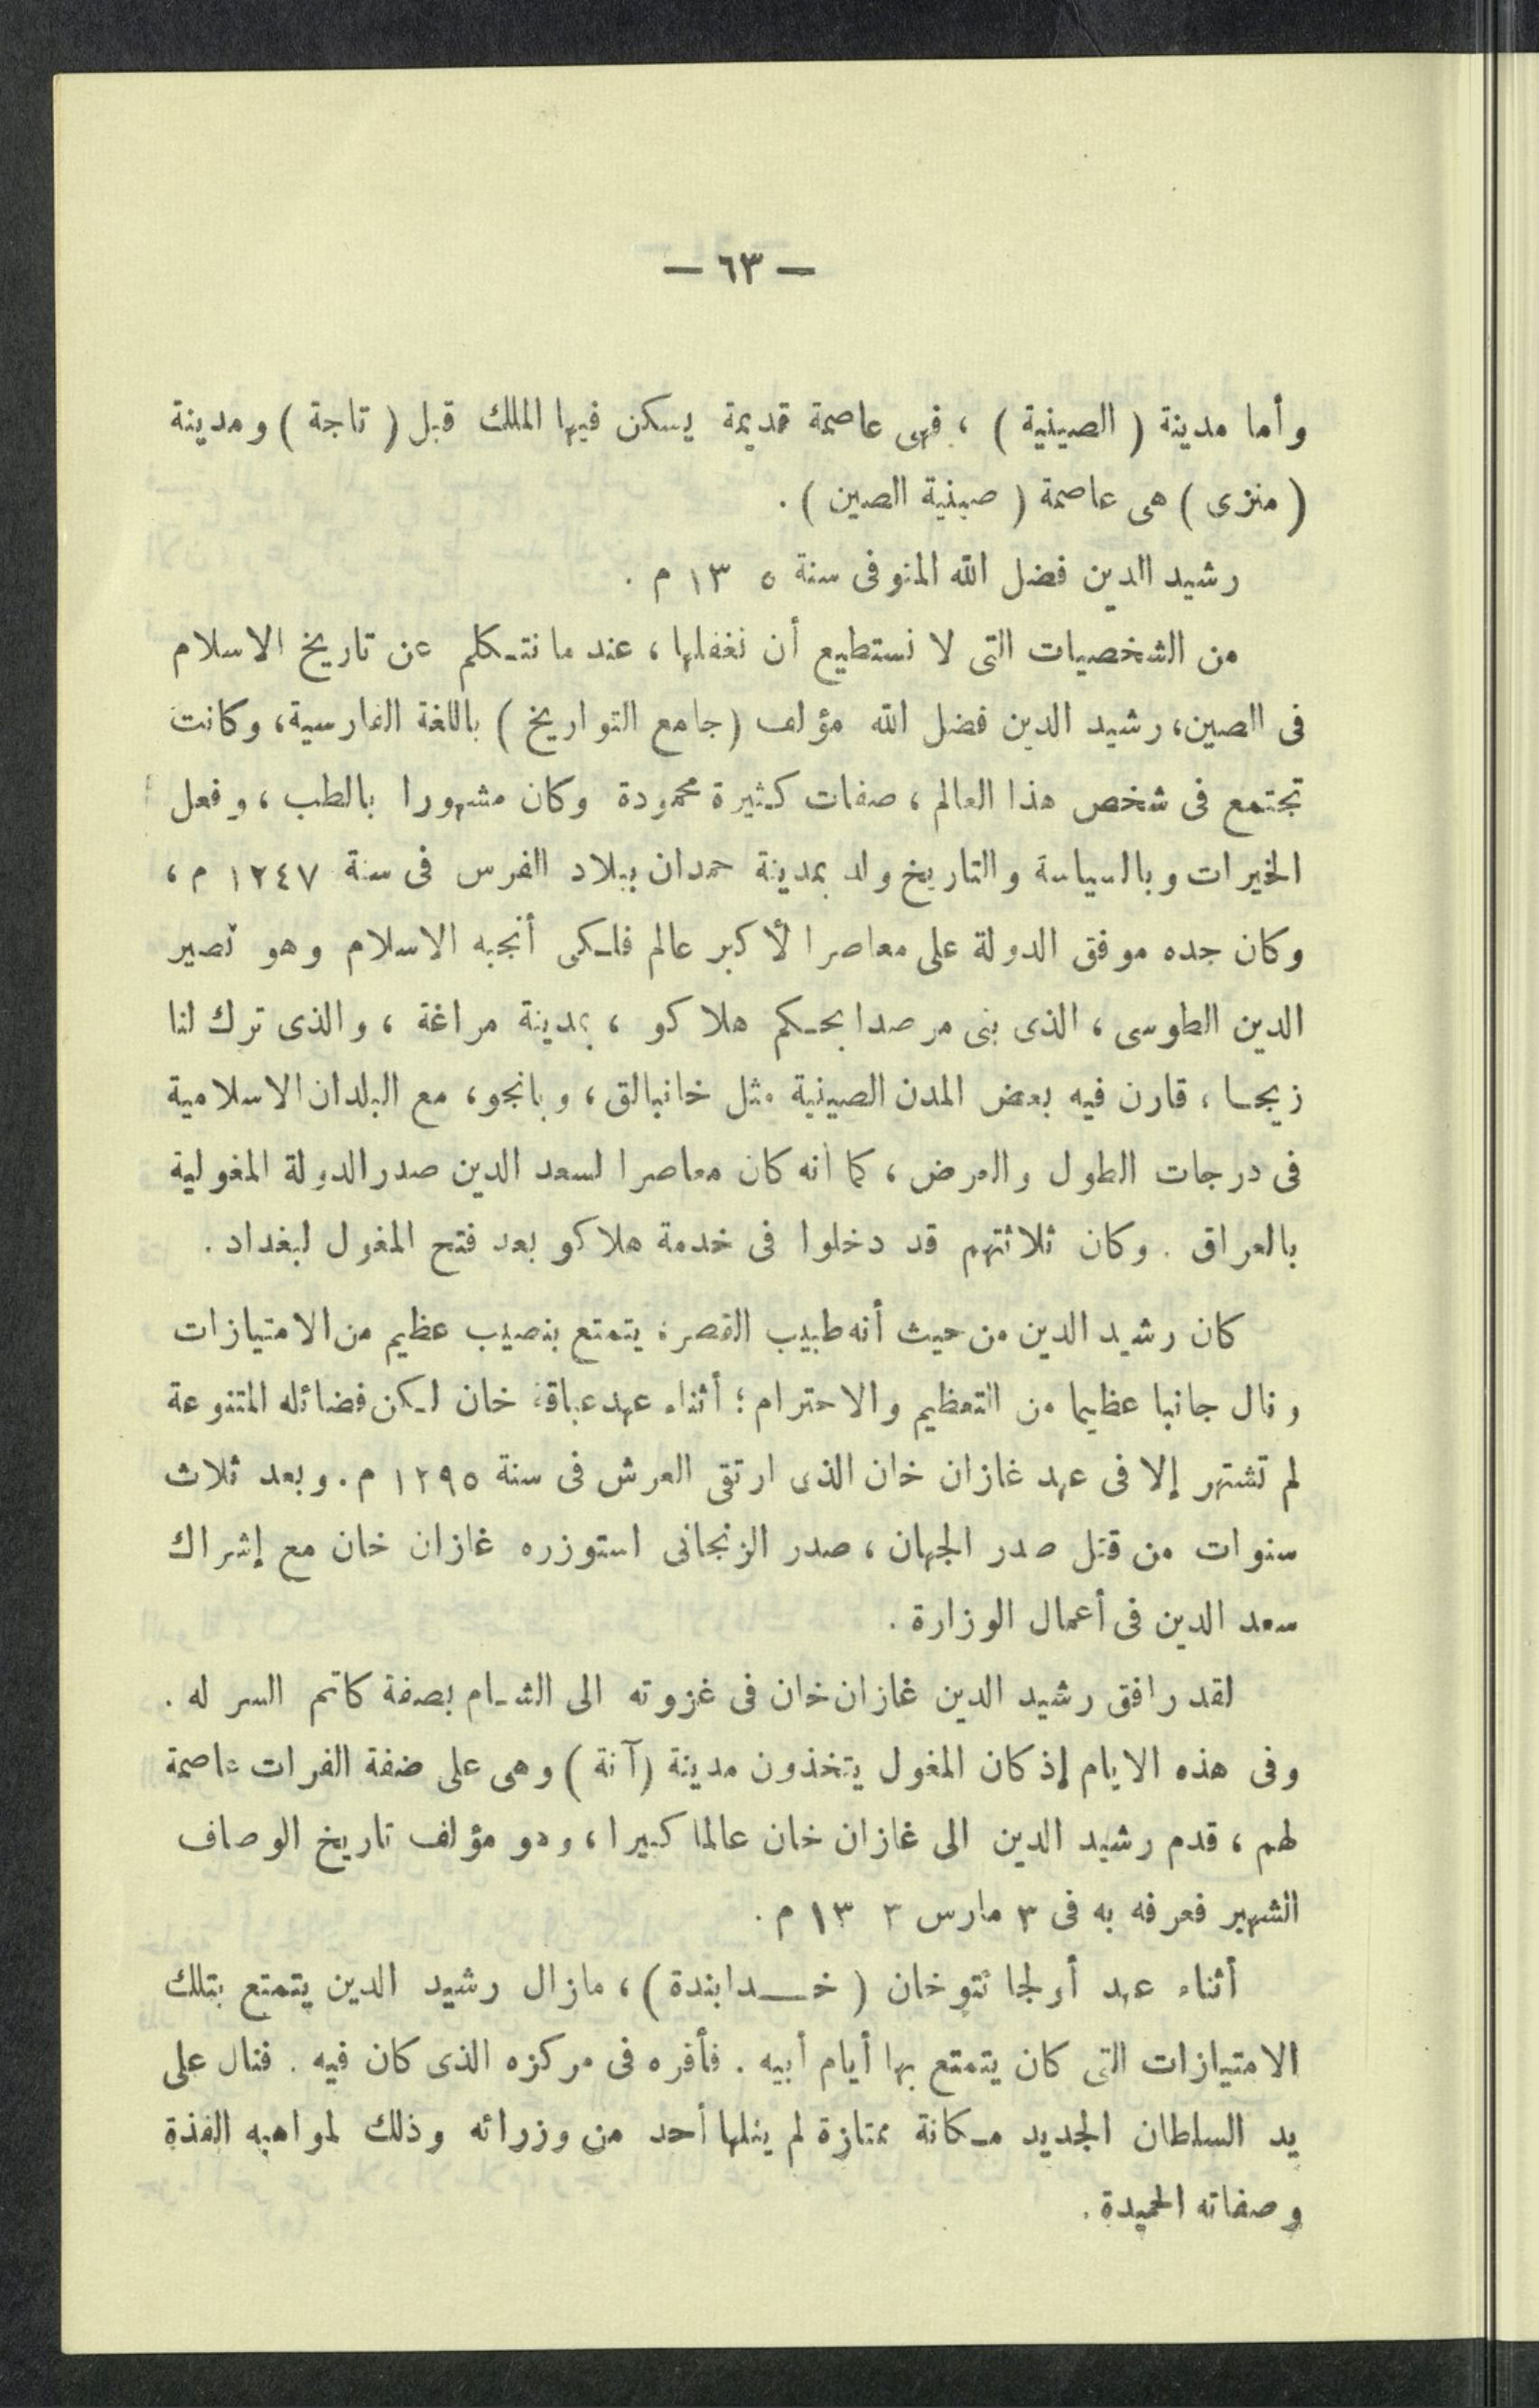 — ٦٣ —
وأما مدينة ( الصينية ) ، فهى عاصمة قديمة يسكن فيها الملك قبل ( تاجة ) ومدينة
( منزى ) هى عاصمة ( صينية الصين ) .
رشيد الدين فضل الله المتوفى سنة ٥ ١٣ م .
من الشخصيات التى لا نستطيع أن نغفلها ، عند ما نتكلم عن تاريخ الاسلام
فى الصين، رشيد الدين فضل الله مؤلف (جامع التواريخ) باللغة الفارسية، وكانت
تجتمع فى شخص هذا العالم ، صفات كثيرة محمودة وكان مشهورا بالطب ، وفعل
الخيرات وبالسياسة والتاريخ ولد بمدينة حمدان ببلاد الفرس فى سنة ١٢٤٧ م ،
وكان جده موفق الدولة على معاصرا لأكبر عالم فلكى أنجبه الاسلام وهو نصير
الدين الطوسى ، الذى بنى مرصدا بحكم هلاكو ، بمدينة مراغة ، والذى ترك لنا
زيجا ، قارن فيه بعض المدن الصينية مثل خانبالق ، وبانجو، مع البلدان الاسلامية
فى درجات الطول والعرض ، كما انه كان معاصرا لسعد الدين صدر الدولة المغولية
بالعراق . وكان ثلاثتهم قد دخلوا فى خدمة هلاكو بعد فتح المغول لبغداد .
كان رشيد الدين من حيث أنه طبيب القصر، يتمتع بنصيب عظيم من الامتيازات
ونال جانبا عظيما من التعظيم والاحترام ؛ أثناء عهد عباقة خان لكن فضائله المتنوعة
لم تشتهر إلا فى عهد غازان خان الذى ارتقى العرش فى سنة ١٢٩٥ م . وبعد ثلاث
سنوات من قتل صدر الجهان ، صدر الزنجانى استوزره غازان خان مع إشراك
سعد الدين فى أعمال الوزارة .
لقد رافق رشيد الدين غازان خان فى غزوته الى الشام بصفة كاتم السر له .
وفى هذه الايام إذ كان المغول يتخذون مدينة (آنة) وهى على ضفة الفرات عاصمة
لهم ، قدم رشيد الدين الى غازان خان عالما كبيرا ، وهو مؤلف تاريخ الوصاف
الشهير فعرفه به فى ٣ مارس ٣ ١٣ م .
أثناء عهد أولجا تتو خان ( خدابندة ) ، مازال رشيد الدين يتمتع بتلك
الامتيازات التى كان يتمتع بها أيام أبيه . فأقره فى مركزه الذى كان فيه . فنال على
يد السلطان الجديد مكانة ممتازة لم ينلها أحد من وزرائه وذلك لمواهبه الفذة
وصفاته الحميدة .